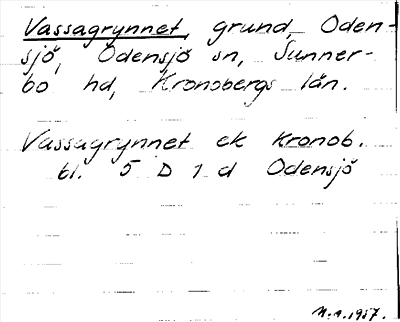 Vassagrynnet, grund, Oden-
sjö, Odensjö sn, Sunner-
bo hd, Kronobergs län.
Vassagrynnet ek Kronob.
bl. 5 D 1 d Odensjö
1957.